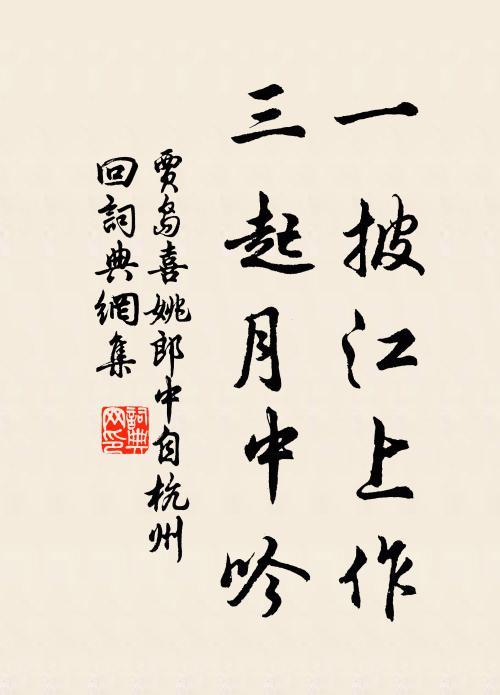 一披江上作
三起月中吟
賈島喜姚郎中自杭州
回詞典網集
詞典
网印